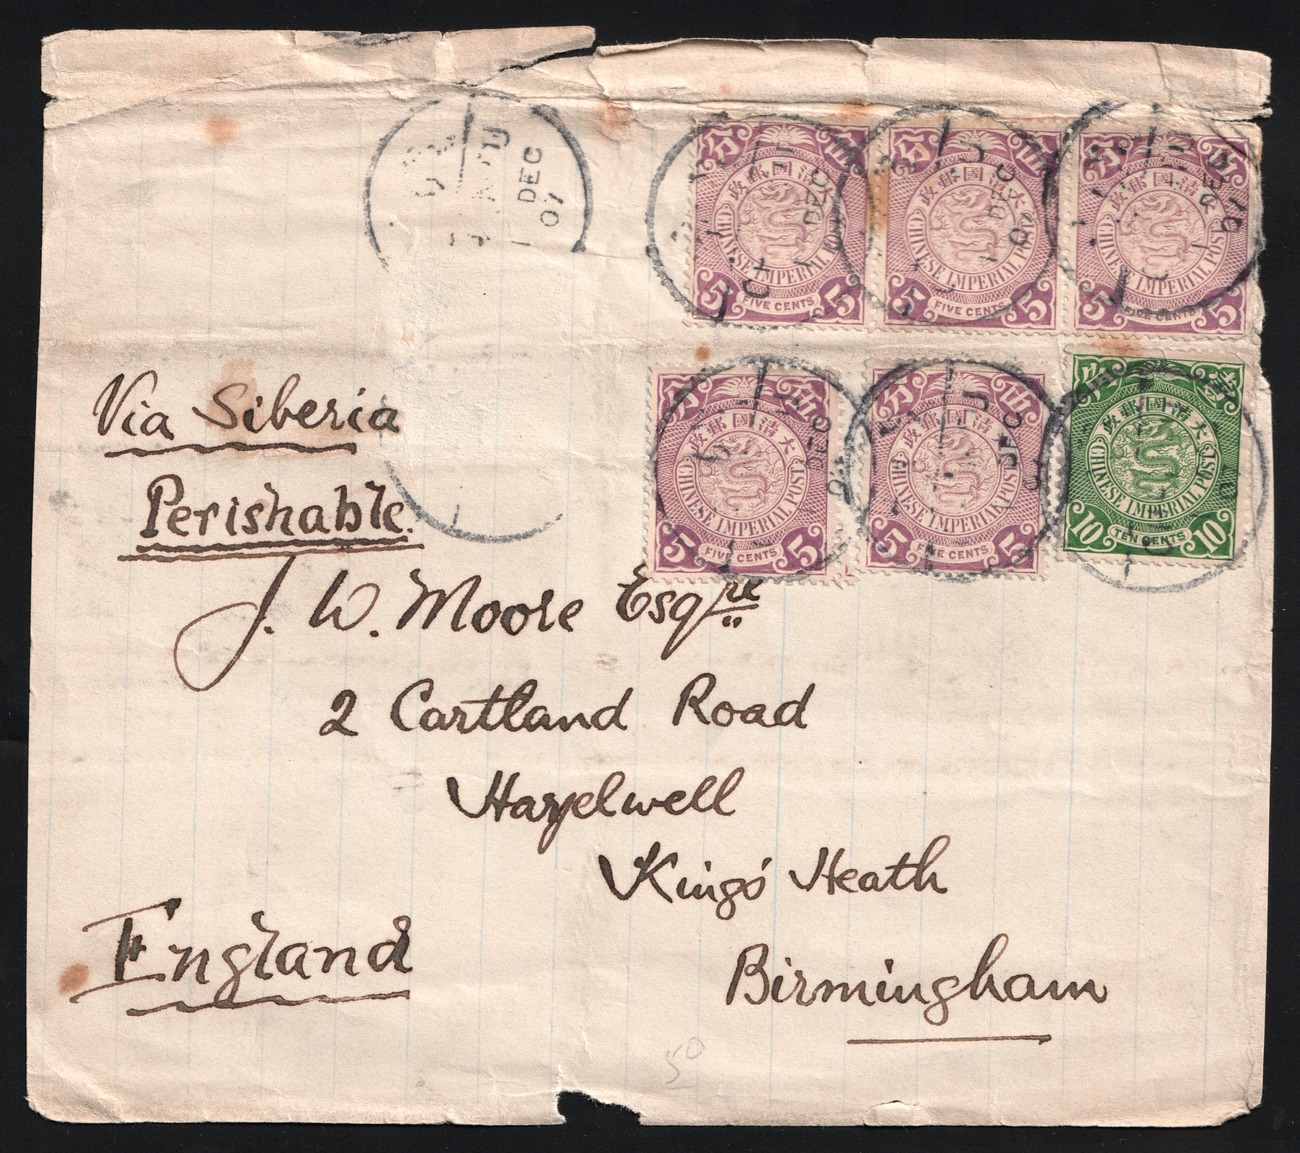 DEC
07
分 五
政郵國清大
CHINESE IMPERIAL POST
5 FIVE CENTS 5
分 五
政郵國清大
CHINESE IMPERIAL POST
5 FIVE CENTS 5
分 五
政郵國清大
CHINESE IMPERIAL POST
5 FIVE CENTS 5
分 五
政郵國清大
CHINESE IMPERIAL POST
5 FIVE CENTS 5
分 五
政郵國清大
CHINESE IMPERIAL POST
5 FIVE CENTS 5
政郵國清大
CHINESE IMPERIAL POST
10 TEN CENTS 10
Via Siberia
Perishable.
J. W. Moore Esqre
2 Cartland Road
Hazelwell
King's Heath
Birmingham
England
50